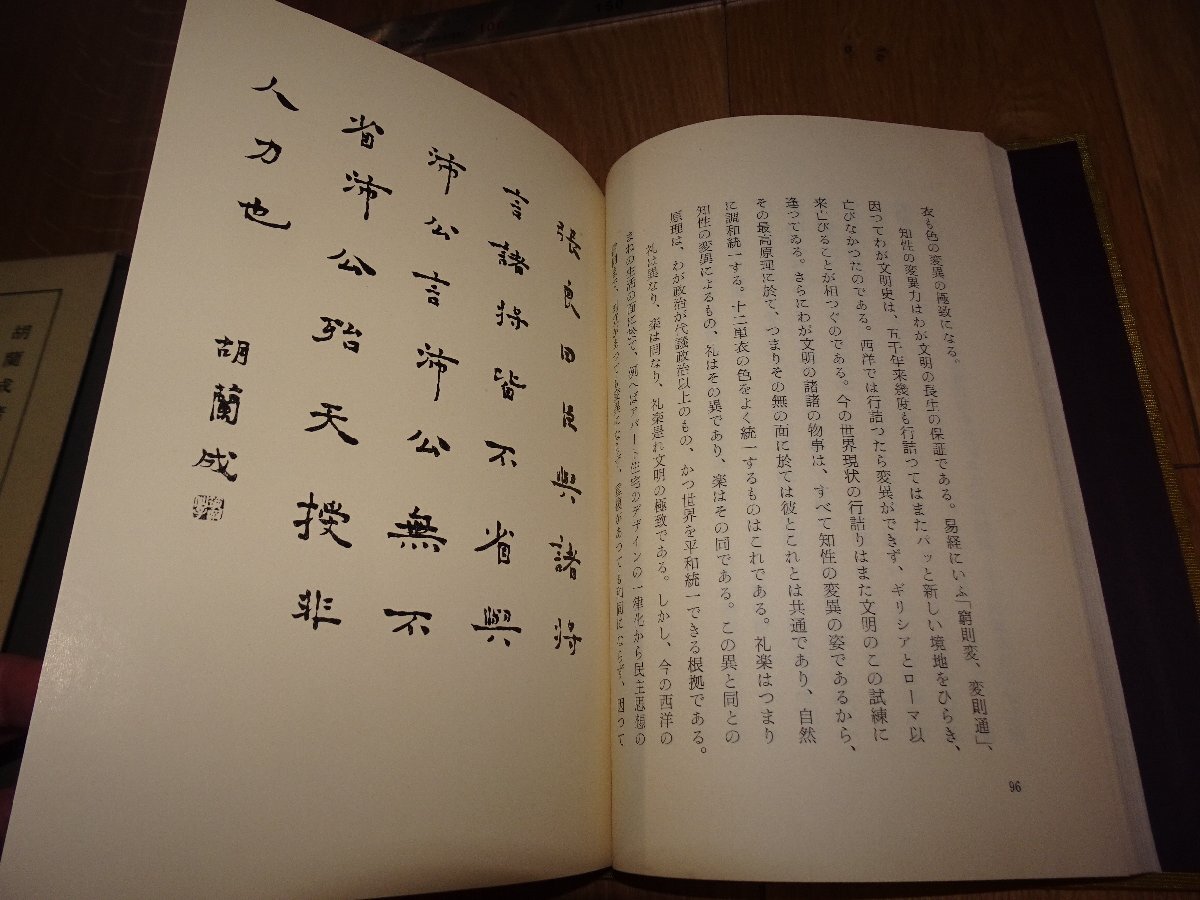 衣も色の変異の極致になる。
知性の変異力はわが文明の長生の保証である。易経にいふ「窮則変、変則通」、
因つてわが文明史は、五千年来幾度も行詰つてはまたパッと新しい境地をひらき、
亡びなかつたのである。西洋では行詰つたら変異ができず、ギリシアとローマ以
来亡びることが相つぐのである。今の世界現状の行詰りはまた文明のこの試練に
逢つてゐる。さらにわが文明の諸諸の物事は、すべて知性の変異の姿であるから、
その最高原理に於て、つまりその無の面に於ては彼とこれとは共通であり、自然
に調和統一する。十二単衣の色をよく統一するものはこれである。礼楽はつまり
知性の変異によるもの、礼はその異であり、楽はその同である。この異と同との
原理は、わが政治が代議政治以上のもの、かつ世界を平和統一できる根拠である。
礼は異なり、楽は同なり、礼楽是れ文明の極致である。しかし、今の西洋の
まねの生活の面に於て、例へばアパート住宅のデザインの一律化から民主思想の
96
張良曰臣與諸將
言諸將皆不省與
沛公言沛公無不
省沛公殆天授非
人力也
胡蘭成
胡蘭成著
100
150